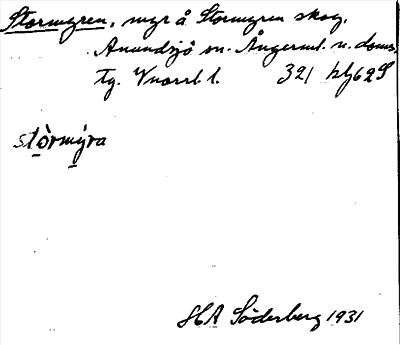 Stormyren, myr å Stormyren skog,
Anundsjö sn. Ångerml. n. doms.
tg. Vnorrl l. 321 kbg 62S
stòrmýra
HA Söderberg 1931